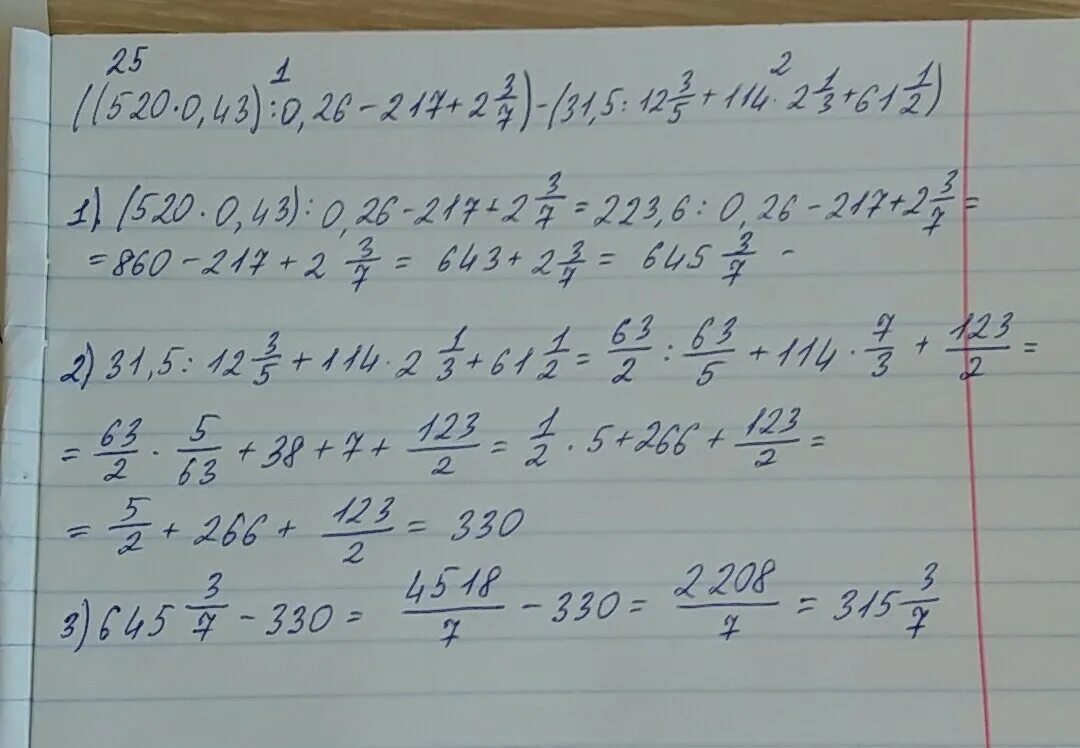 25
1 2
((520·0,43):0,26-217+2 3/7)-(31,5:12 3/5+114·2 1/3+61 1/2)
1). (520·0,43):0,26-217+2 3/7=223,6:0,26-217+2 3/7=
=860-217+2 3/7=643+2 3/7=645 3/7 -
2) 31,5:12 3/5+114·2 1/3+61 1/2=63/2:63/5+114·7/3+123/2=
=63/2·5/63+38+7+123/2=1/2·5+266+123/2=
=5/2+266+123/2=330
3) 645 3/7-330=4518/7-330=2208/7=315 3/7